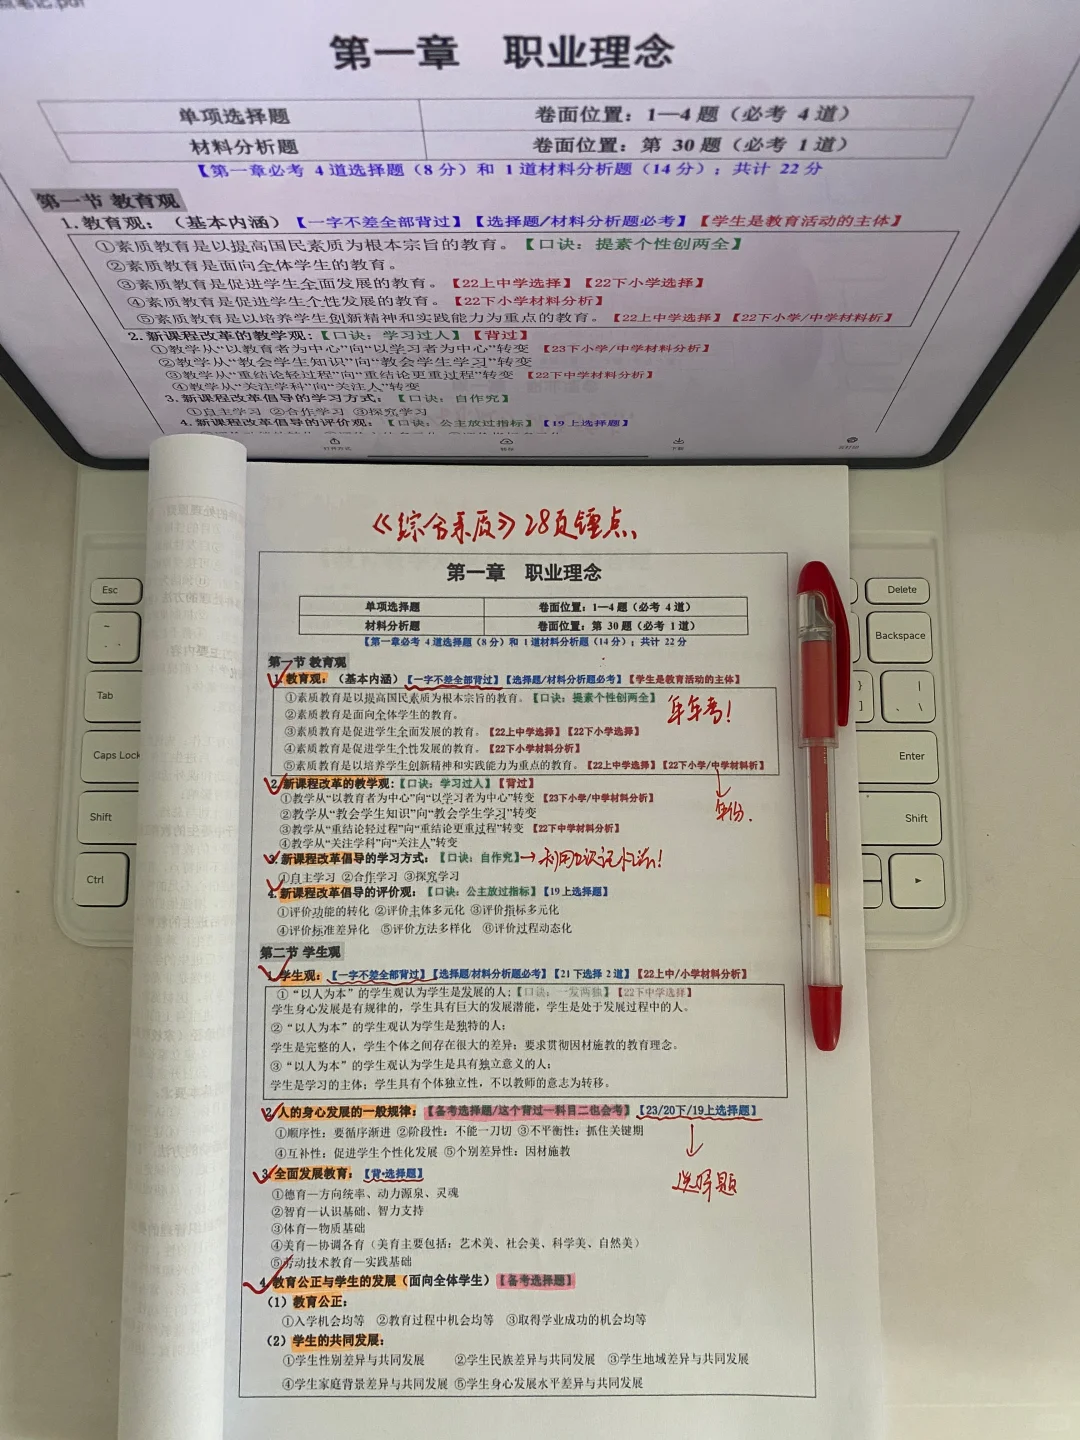 第一章 职业理念
单项选择题 卷面位置：1—4 题（必考 4 道）
材料分析题 卷面位置：第 30 题（必考 1 道）
【第一章必考 4 道选择题（8 分）和 1 道材料分析题（14 分）；共计 22 分
第一节 教育观
1. 教育观：（基本内涵）【一字不差全部背过】【选择题/材料分析题必考】【学生是教育活动的主体】
①素质教育是以提高国民素质为根本宗旨的教育。【口诀：提素个性创两全】
②素质教育是面向全体学生的教育。
③素质教育是促进学生全面发展的教育。【22上中学选择】【22下小学选择】
④素质教育是促进学生个性发展的教育。【22下小学材料分析】
⑤素质教育是以培养学生创新精神和实践能力为重点的教育。【22上中学选择】【22下小学/中学材料析】
2. 新课程改革的教学观：【口诀：学习过人】【背过】
①教学从“以教育者为中心”向“以学习者为中心”转变 【23下小学/中学材料分析】
②教学从“教会学生知识”向“教会学生学习”转变
③教学从“重结论轻过程”向“重结论更重过程”转变 【22下中学材料分析】
④教学从“关注学科”向“关注人”转变
3. 新课程改革倡导的学习方式：【口诀：自作究】
①自主学习 ②合作学习 ③探究学习
4. 新课程改革倡导的评价观：【口诀：公主放过指标】【19上选择题】
《综合素质》28页锤点、
第一章 职业理念
单项选择题 卷面位置：1—4 题（必考 4 道）
材料分析题 卷面位置：第 30 题（必考 1 道）
【第一章必考 4 道选择题（8 分）和 1 道材料分析题（14 分）；共计 22 分
第一节 教育观
1. 教育观：（基本内涵）【一字不差全部背过】【选择题/材料分析题必考】【学生是教育活动的主体】
①素质教育是以提高国民素质为根本宗旨的教育。【口诀：提素个性创两全】
年年考！
②素质教育是面向全体学生的教育。
③素质教育是促进学生全面发展的教育。【22上中学选择】【22下小学选择】
④素质教育是促进学生个性发展的教育。【22下小学材料分析】
⑤素质教育是以培养学生创新精神和实践能力为重点的教育。【22上中学选择】【22下小学/中学材料析】
2. 新课程改革的教学观：【口诀：学习过人】【背过】
①教学从“以教育者为中心”向“以学习者为中心”转变 【23下小学/中学材料分析】
年份.
②教学从“教会学生知识”向“教会学生学习”转变
③教学从“重结论轻过程”向“重结论更重过程”转变 【22下中学材料分析】
④教学从“关注学科”向“关注人”转变
3. 新课程改革倡导的学习方式：【口诀：自作究】→利用口诀记忆法！
①自主学习 ②合作学习 ③探究学习
4. 新课程改革倡导的评价观：【口诀：公主放过指标】【19上选择题】
①评价功能的转化 ②评价主体多元化 ③评价指标多元化
④评价标准差异化 ⑤评价方法多样化 ⑥评价过程动态化
第二节 学生观
1. 学生观：【一字不差全部背过】【选择题/材料分析题必考】【21下选择 2 道】【22上中/小学材料分析】
①“以人为本”的学生观认为学生是发展的人；【口诀：一发两独】【22下中学选择】
学生身心发展是有规律的，学生具有巨大的发展潜能，学生是处于发展过程中的人。
②“以人为本”的学生观认为学生是独特的人；
学生是完整的人，学生个体之间存在很大的差异；要求贯彻因材施教的教育理念。
③“以人为本”的学生观认为学生是具有独立意义的人；
学生是学习的主体；学生具有个体独立性，不以教师的意志为转移。
2. 人的身心发展的一般规律：【备考选择题/这个背过一科目二也会考】【23/20下/19上选择题】
①顺序性：要循序渐进 ②阶段性：不能一刀切 ③不平衡性：抓住关键期
④互补性：促进学生个性化发展 ⑤个别差异性：因材施教
3. 全面发展教育：【背·选择题】
选择题
①德育—方向统率、动力源泉、灵魂
②智育—认识基础、智力支持
③体育—物质基础
④美育—协调各育（美育主要包括：艺术美、社会美、科学美、自然美）
⑤劳动技术教育—实践基础
4. 教育公正与学生的发展（面向全体学生）【备考选择题】
（1）教育公正：
①入学机会均等 ②教育过程中机会均等 ③取得学业成功的机会均等
（2）学生的共同发展：
①学生性别差异与共同发展 ②学生民族差异与共同发展 ③学生地域差异与共同发展
④学生家庭背景差异与共同发展 ⑤学生身心发展水平差异与共同发展
Esc
Tab
Caps Lock
Shift
Ctrl
Delete
Backspace
Enter
Shift